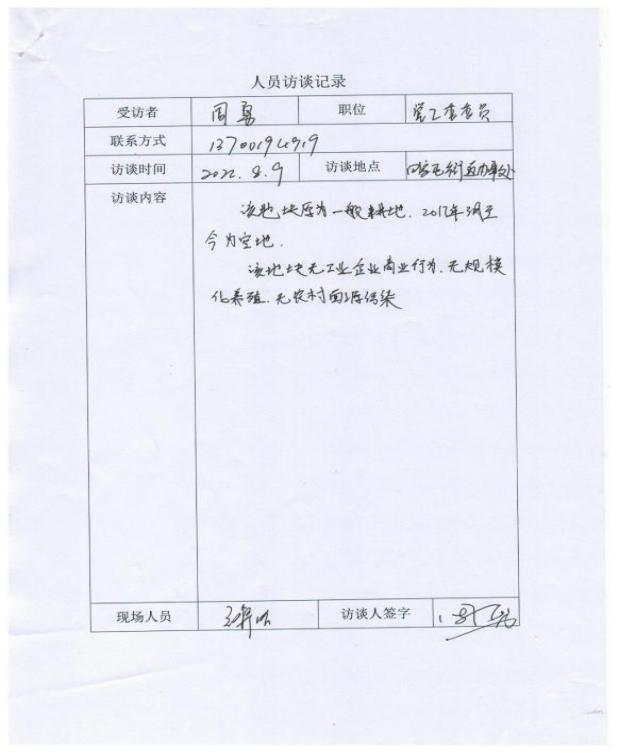 人员访谈记录
受访者 周勇 职位 员
联系方式 13700194919
访谈时间 2022.8.9 访谈地点 街道办事处
访谈内容
该地块原为一般耕地.2017年调至
今为空地.
该地块无工业企业商业行为.无规模
化养殖.无农村面源污染
现场人员 访谈人签字